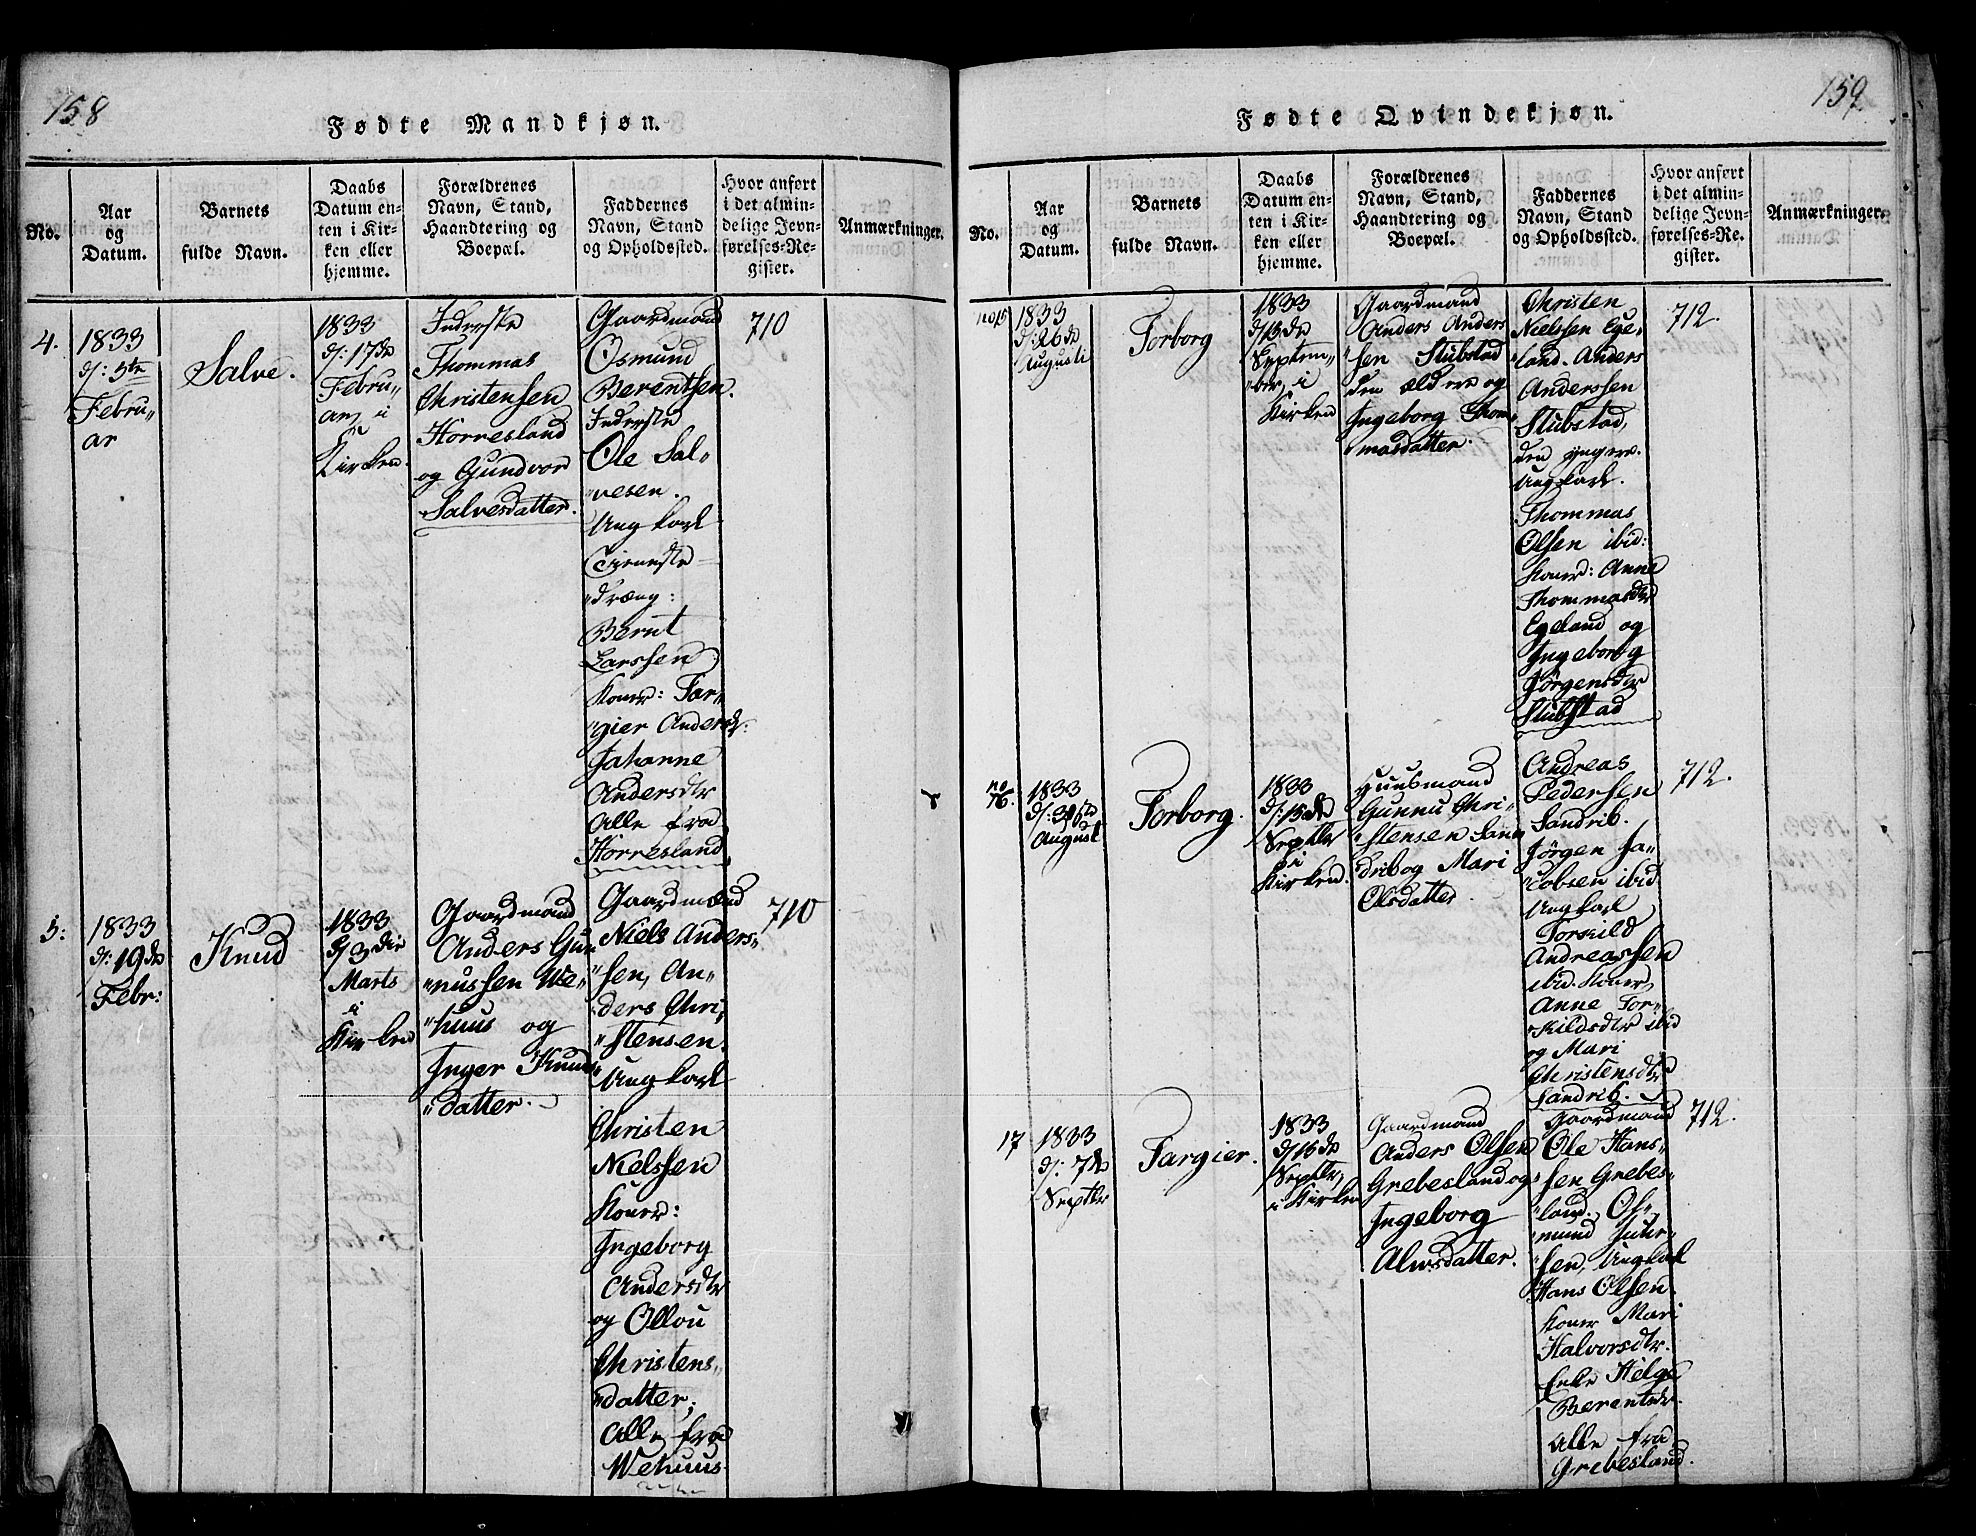 158
Fødte Mandkjøn.
No.
Aar
og
Datum.
Barnets
fulde Navn.
Daabs
Datum en-
ten i Kir-
ken eller
hjemme.
Forældrenes
Navn, Stand,
Haandtering og
Boepæl.
Faddernes
Navn, Stand
og Opholdssted.
Hvor anført
i det almin-
delige Jevn-
førelses-Re-
gister.
Anmærkninger.
4.
1833
d: 5te
Febru„
ar
Salve.
1833
d: 17de
Febru„
ar, i
Kirken.
Inderste
Thommas
Christensen
Horresland
og Gundvor
Salvesdatter.
Gaardmand
Osmund
Berentsen.
Inderste
Ole Sal„
„vesen.
Ungkarl
Tieneste
„dræng:
Berut
Larssen
Koner: Tar„
„gier Andersdr:
Johanne
Andersdtr
Alle fra
Horresland.
710
5:
1833
d: 19de
Febr:
Knud
1833
d/3die
Marts
i
Kirken
Gaardmand
Anders Gun„
„nussen We„
„huus og
Inger Knuds„
„datter.
Gaardmænd
Niels Anders„
„sen, An„
ders Chri„
„stensen.
Ungkarl
Christen
Nielssen
Koner:
Ingeborg
Andersdtr
og Ollou
Christens„
„datter;
Alle fra
Wehuus
710
159
Fødte Qvindekjøn.
No.
Aar
og
Datum.
Barnets
fulde Navn.
Daabs
Datum en-
ten i Kir-
ken eller
hjemme.
Forældrenes
Navn, Stand,
Haandtering og
Boepæl.
Faddernes
Navn, Stand
og Opholdssted.
Hvor anført
i det almin-
delige Jevn-
førelses-Re-
gister.
Anmærkninger.
no15
1833
d: 26de
Augusti
Torborg
1833
d/15de
Septem„
„ber, i
Kirken
Gaardmand
Anders Anders
„sen Stubstad
den ældere og
Ingeborg Thom„
masdatter.
Christen
Nielssen Ege„
„land. Anders
Anderssen
Stubstad,
den yngere.
Ungkarl.
Thommas
Olsen ibid:
Koner: Anne
Thommasdtr
Egeland og
Ingeborg
Jörgensdtr
Stubstad
712.
no
16.
1833
August
Torborg.
1833
d: 15de
Septbr
i
Kirken.
Huusmand
Gunnu Chri„
stensen San„
drib og Mari
Olsdatter.
Andreas
Pedersen
Sandrib.
Jörgen Ja„
„cobsen ibid.
Ungkarl
Torskild
Andreassen
ibid. Koner,
Anne Tor„
„skildsdtr ibid
og Mari
Christensdtr
Sandrib.
712.
17
1833
d: 7de
Septbr
Targier.
1833
d/15de
Septbr,
i Kirken
Gaardmand
Anders Olsen
Grebesland og
Ingeborg
Alwsdatter.
Gaardmand
Ole Hans„
sen Grebes„
„land. Os„
mund
„sen, Ungkarl
Hans Olsen.
Koner Mari
Halvorsdtr.
Enke Helge
Berentsdr.
Alle fra
Grebesland.
712.